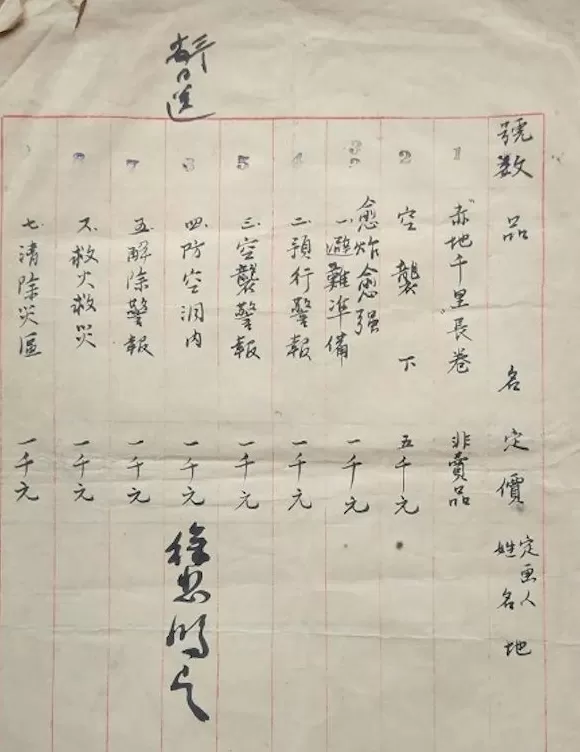 號数 品名 定價 定画人姓名 地
1 "赤地千里"長卷 非賣品
2 空襲下 五千元
3 愈炸愈强
一.避難準備 一千元
4 二.預行警報 一千元
5 三.空襲警報 一千元
6 四.防空洞内 一千元
7 五.解除警報 一千元
8 六.救火救災 一千元
七.清除災區 一千元